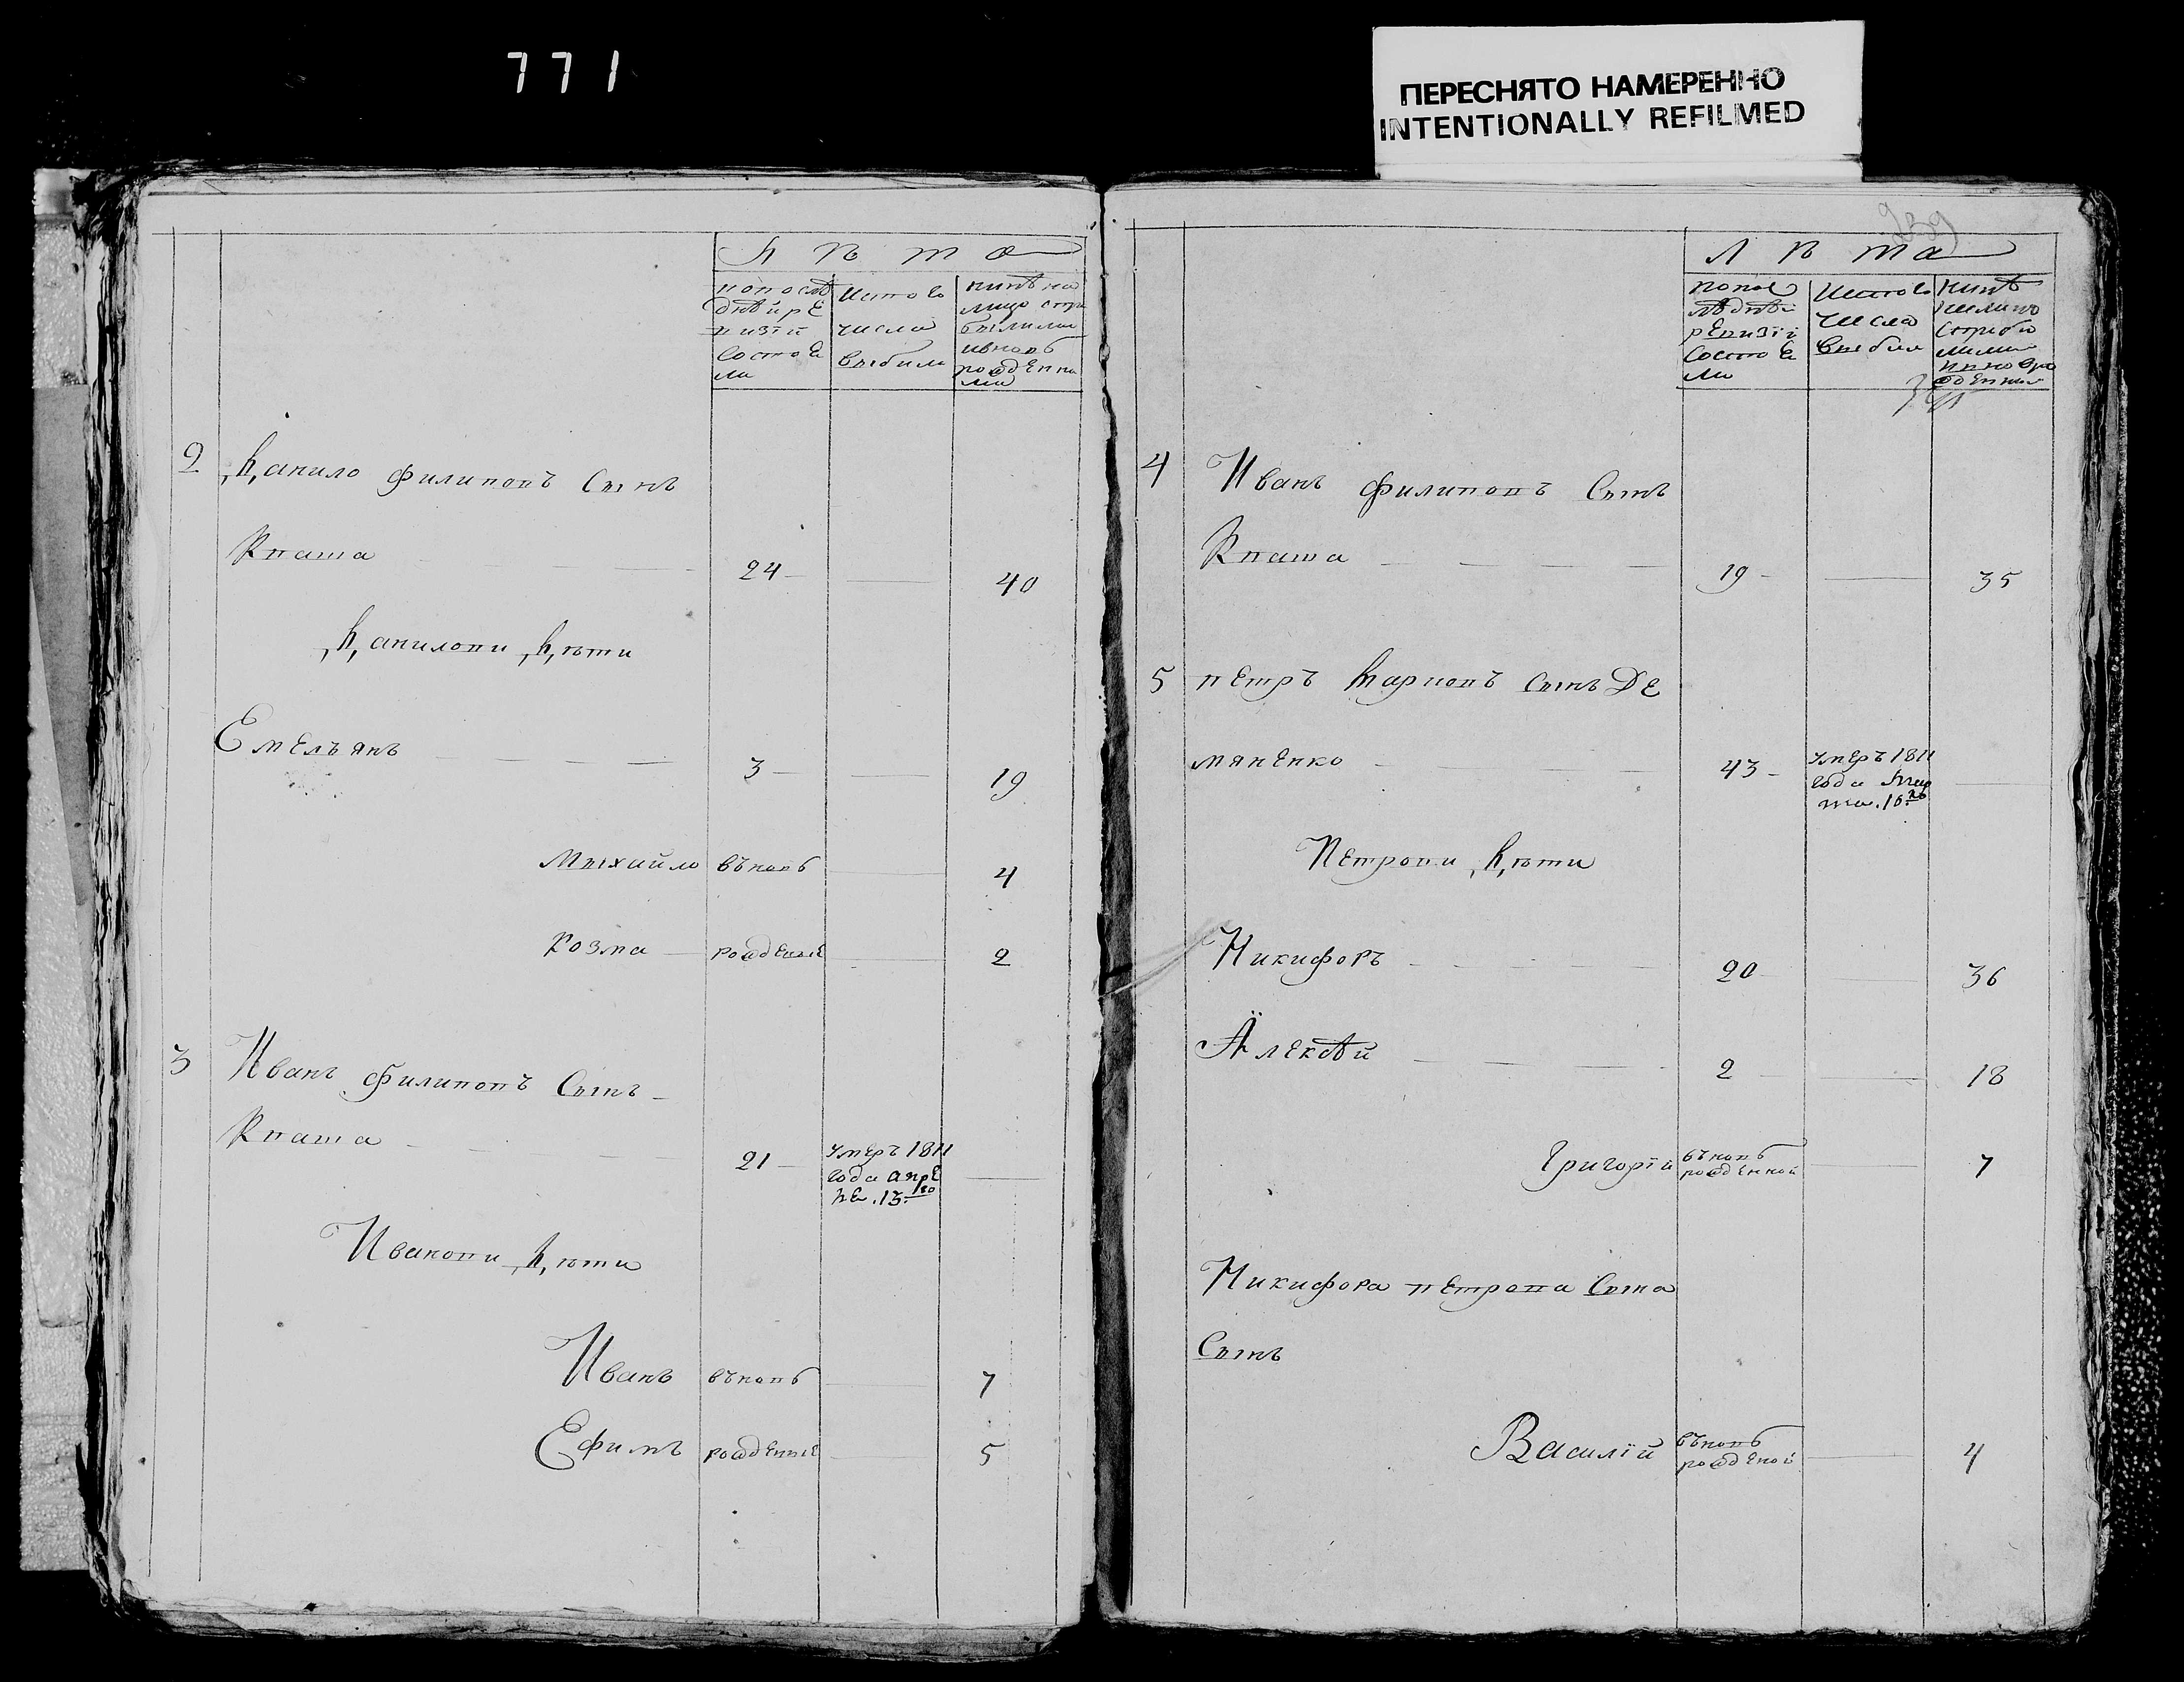 771
ПЕРЕСНЯТО НАМЕРЕННО
INTENTIONALLY REFILMED
Лѣта
попослѣ
днѣй рѣ
визіи
состоя
ли
Изтого
числа
выбыли
нинѣ на
лицо стри
былими
ивновь
рожденны
ми
2 Данило Филиповъ сынъ
Кваша 24 40
Даниловы дѣти
Емельянъ 3 19
Мыхайло въновь 4
Козма рожденые 2
3 Иванъ Филиповъ сынъ
Кваша 21 умеръ 1811
года апре
ля 13го
Ивановы дѣти
Иванъ въновь 7
Ефимъ рожденые 5
239
Лѣта
попос
лѣднѣй
ревизіи
состоя
ли
Изтого
числа
выбыли
нинѣ
4 Иванъ Филиповъ сынъ
Кваша 19 35
5 Петръ Марковъ сынъ Де
мяненко 43 умеръ 1811
года мар
та 16го
Петровы дѣти
Никифоръ 20 36
Алексѣй 2 18
Григорій въновь рожденной 7
Никифора Петрова сына
сынъ
Василій въновь рожденой 4